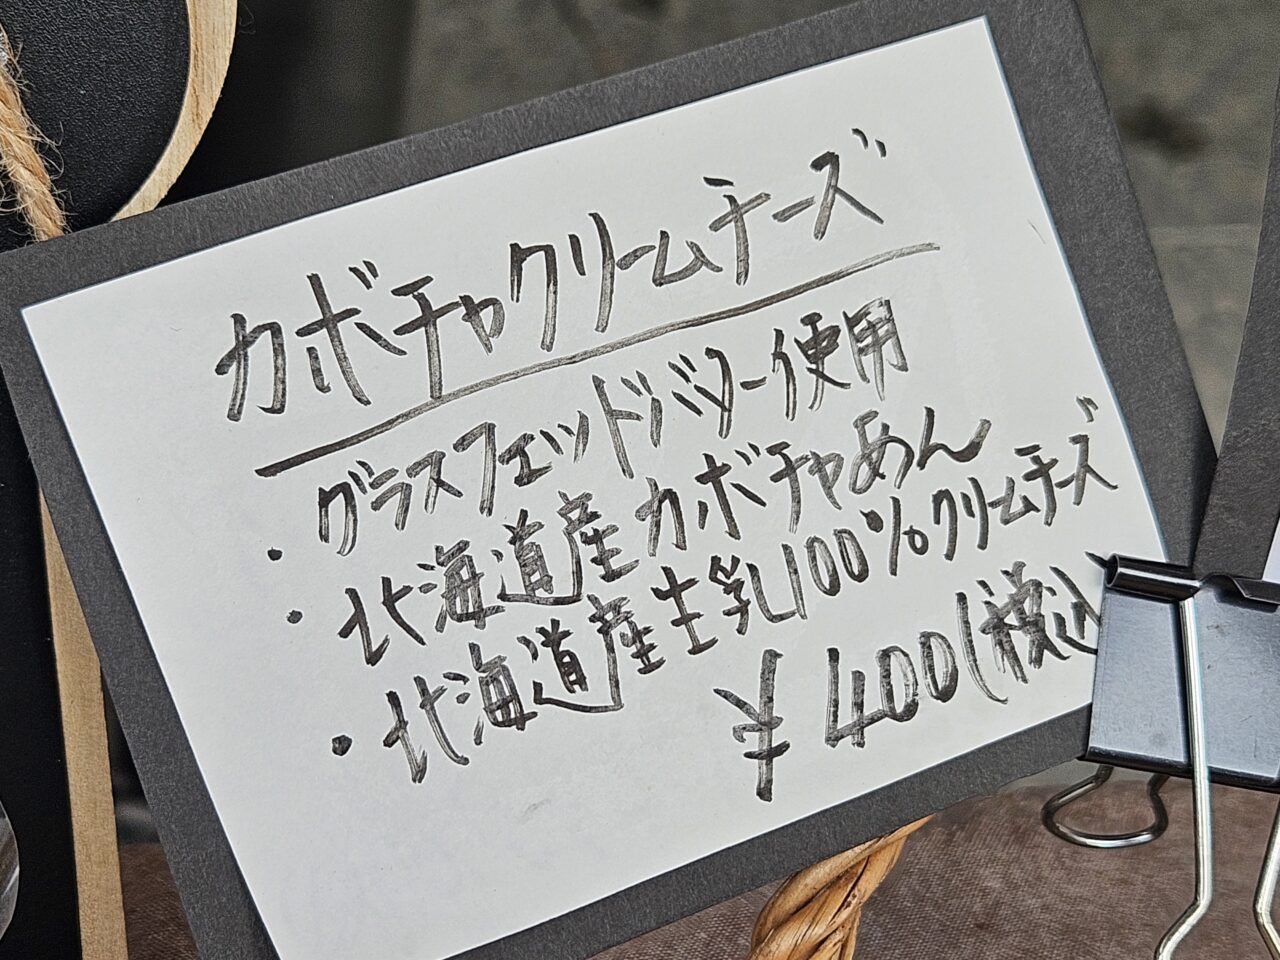 カボチャクリームチーズ
・グラスフェッドバター使用
・北海道産カボチャあん
・北海道産生乳100%クリームチーズ
¥400(税込